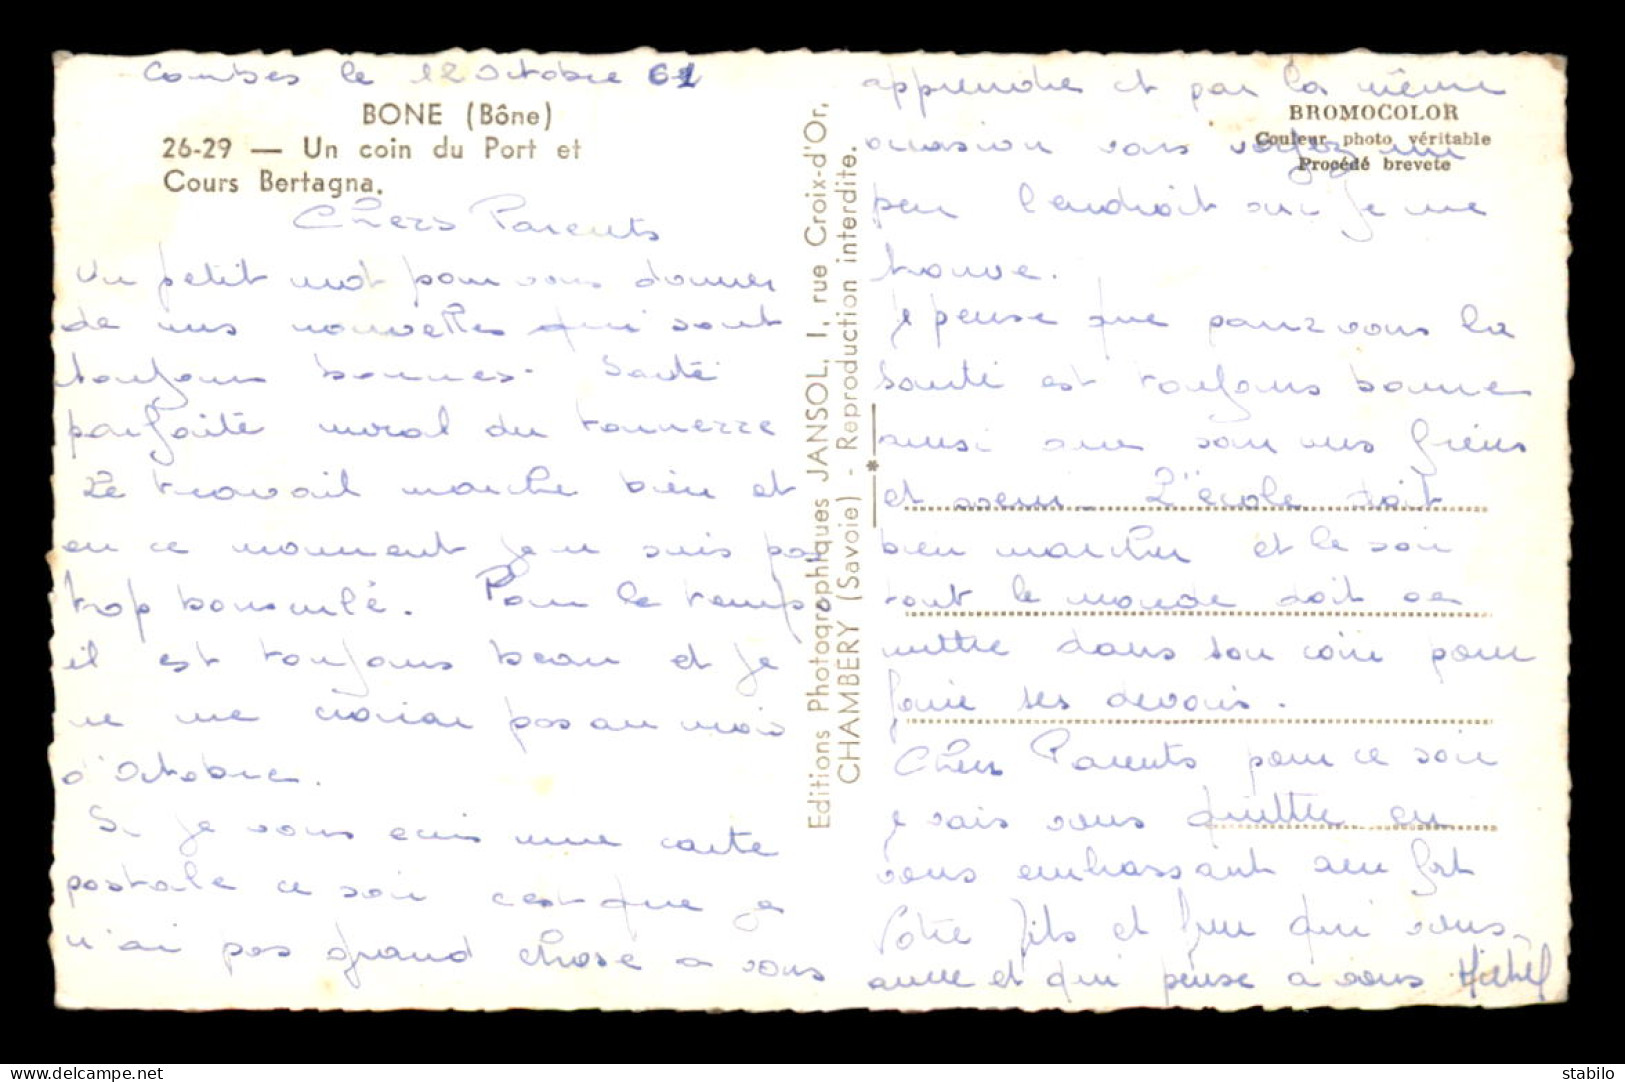 Combes le 12 Octobre 61
BONE (Bône)
26-29 — Un coin du Port et
Cours Bertagna.
Chers Parents
Un petit mot pour vous donner
de mes nouvelles qui sont
toujours bonnes. Santé
parfaite moral du tonnerre
Le travail marche bien et
en ce moment je ne suis pas
trop bousculé. Pour le temps
il est toujours beau et je
ne me croirai pas au mois
d'Octobre.
Si je vous ecris une carte
postale ce soir c'est que je
n'ai pas grand chose a vous
Editions Photographiques JANSOL, 1, rue Croix-d'Or,
CHAMBERY (Savoie) - Reproduction interdite.
BROMOCOLOR
Couleur photo véritable
Procédé brevete
apprendre et par la même
occasion vous voyez un
peu l'endroit ou je me
trouve.
Je pense que pour vous la
santé est toujours bonne
ainsi que pour mes frères
et soeur. L'école doit
bien marcher et le soir
tout le monde doit se
mettre dans son coin pour
faire ses devoirs.
Chers Parents pour ce soir
je vais vous quitter en
vous embrassant bien fort
Votre fils et frère qui vous
aime et qui pense a vous Michel
stabilo
www.delcampe.net